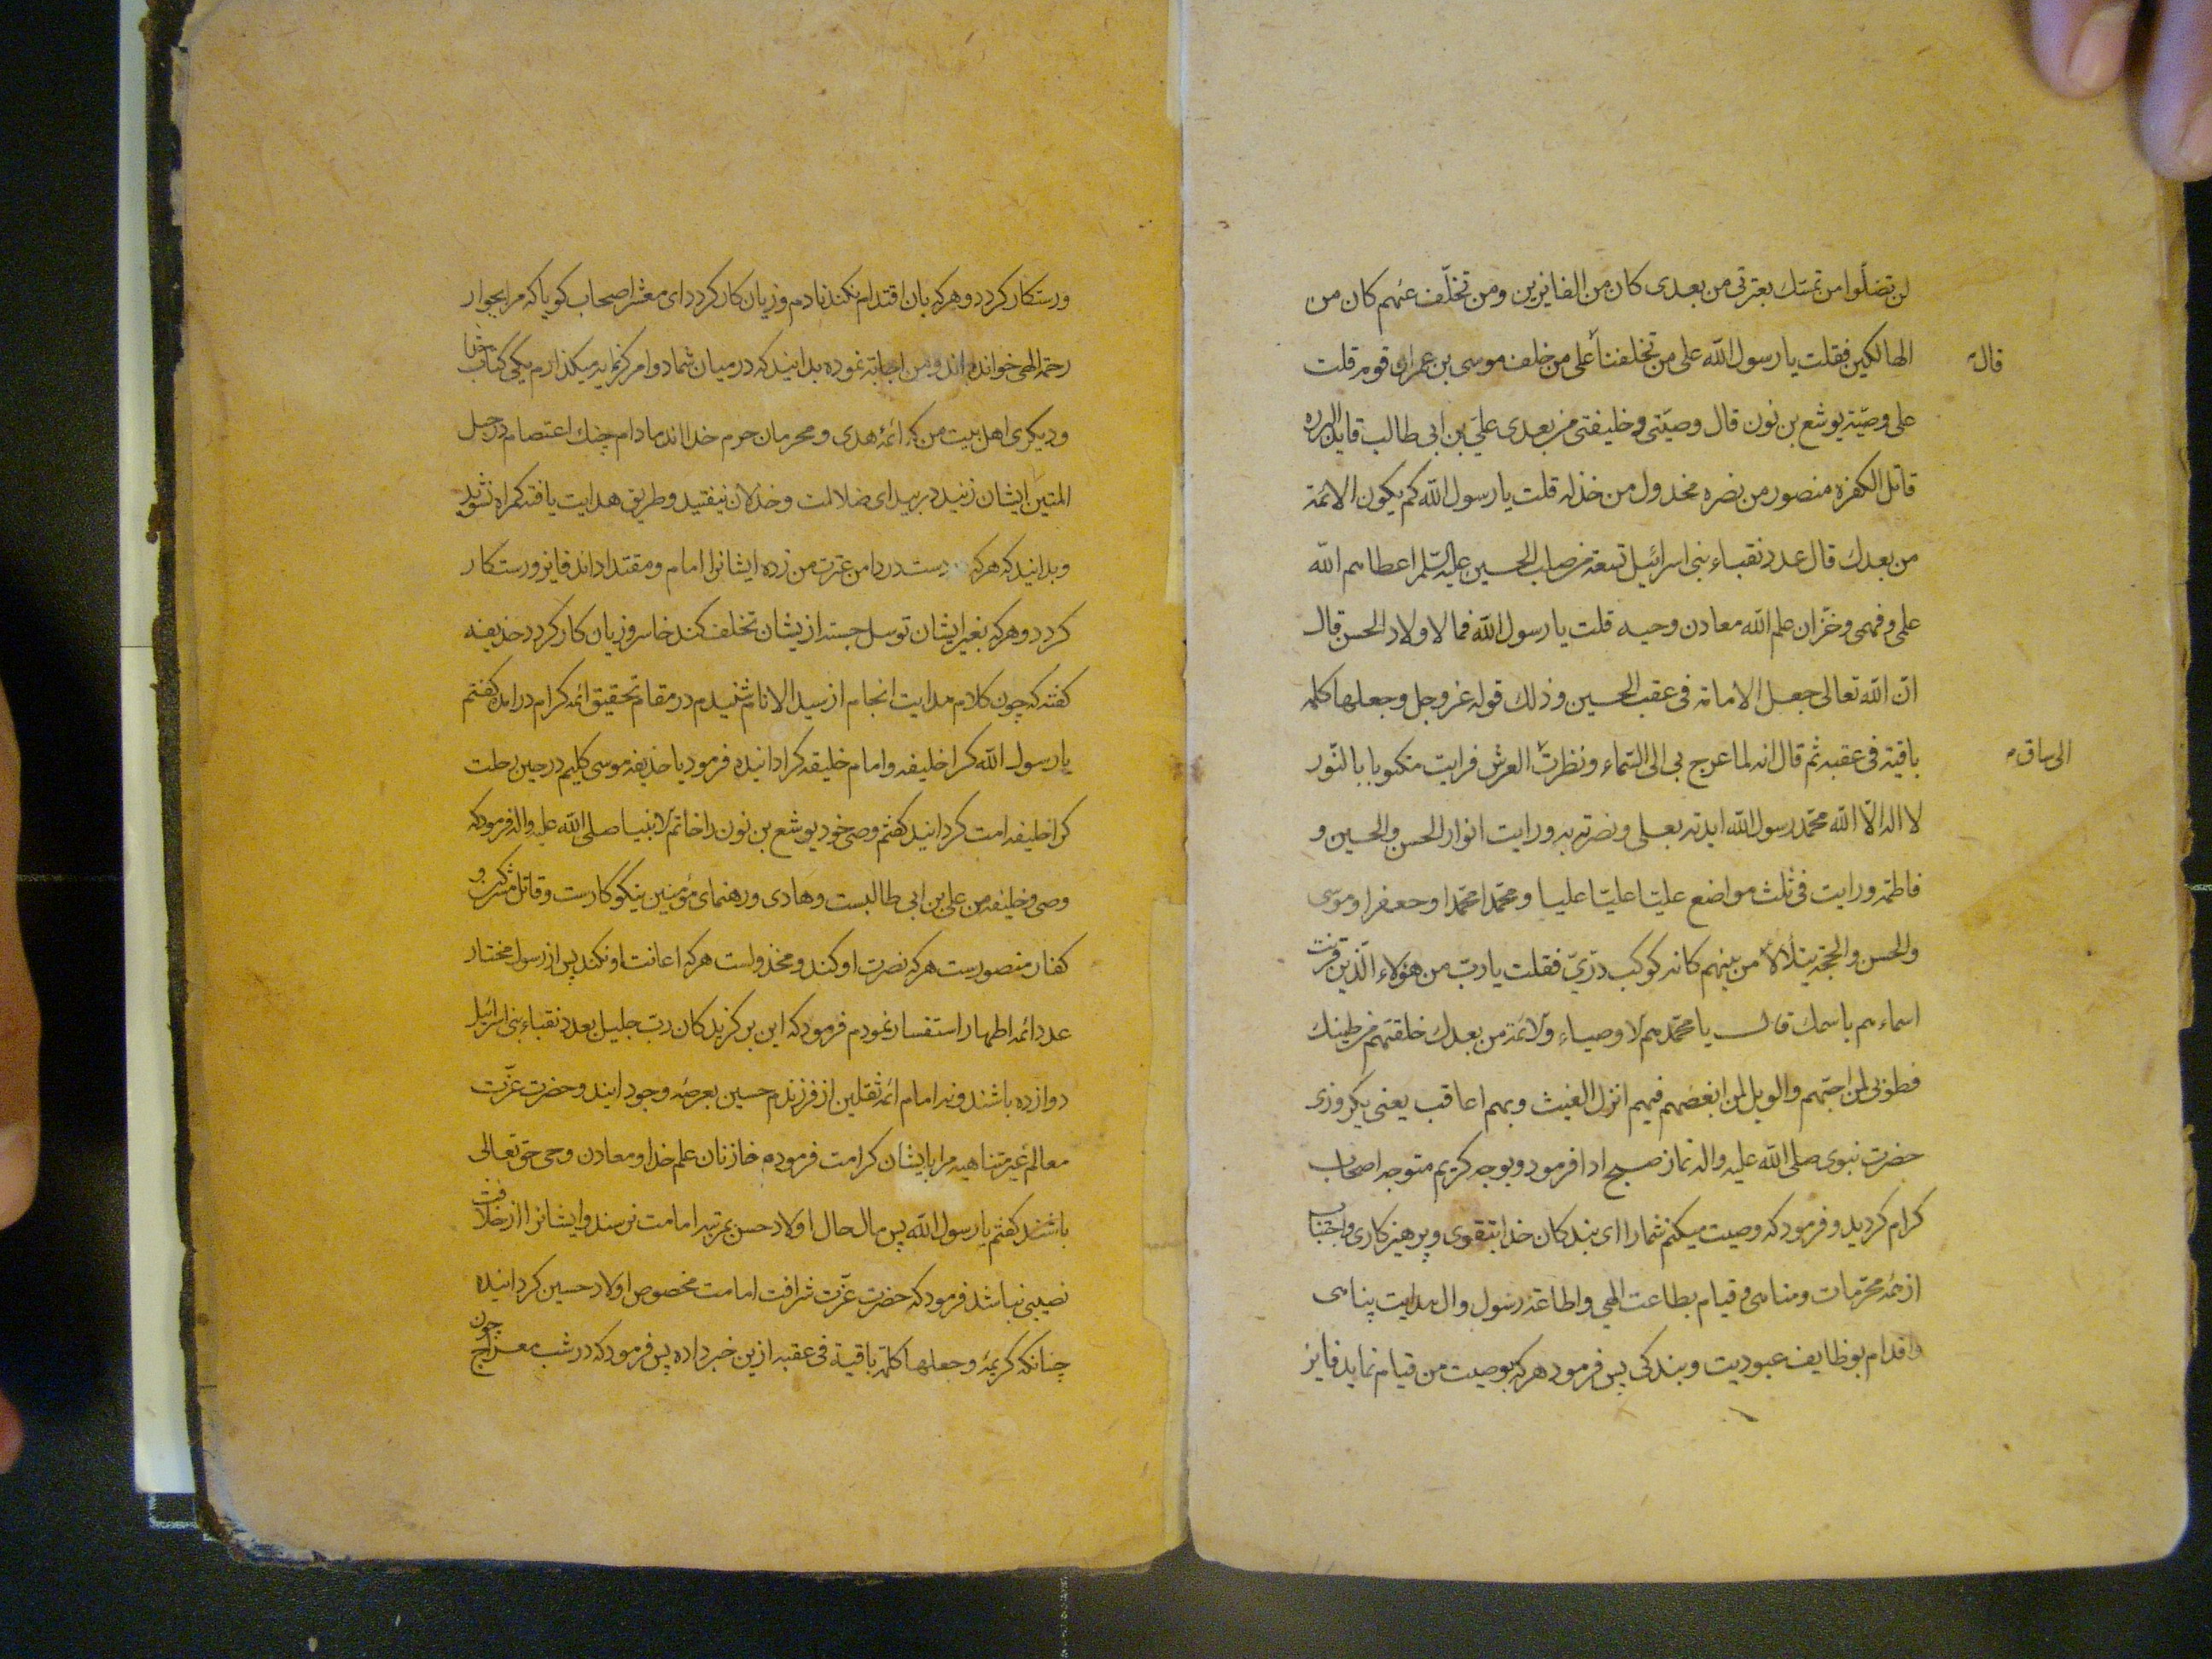 لن تضلّوا من تمسّك بعترتی من بعدی کان من الفایزین ومن تخلّف عنهم کان من
الهالکین فقلت یا رسول الله علی من تخلفنا علی من خلف موسی بن عمران قومه قلت
قال
علی وصیّه یوشع بن نون قال وصیّتی وخلیفتی من بعدی علی بن ابی طالب قاید البرره
قاتل الکفره منصور من نصره مخذول من خذله قلت یا رسول الله کم یکون الائمّة
من بعدك قال عدد نقباء بنی اسرائیل تسعة من صلب الحسین علیه السّلم اعطاهم الله
علمی وفهمی وخزّان علم الله معادن وحیه قلت یا رسول الله فما لاولاد الحسن قال
انّ الله تعالی جعل الامامة فی عقب الحسین وذلك قوله عز وجل وجعلها کلمه
باقیة فی عقبه ثم قال انه لما عرج بی الی السّماء ونظرت العرش فرایت مکتوبا بالنّور
الی ساق
لا اله الّا الله محمّد رسول الله ایدته بعلی ونصرته به ورایت انوار الحسن والحسین و
فاطمة ورایت فی ثلث مواضع علیّا علیّا علیا ومحمّدا محمّدا وجعفرا وموسی
والحسن والحجّة یتلألأ من بینهم کانه کوکب درّیّ فقلت یا ربّ من هؤلاء الّذین قرنت
اسماءهم باسمك قال یا محمّد هم الاوصیاء والائمّة من بعدك خلقتهم من طینتك
فطوبی لمن احبّهم والویل لمن ابغضهم فبهم انزل الغیث وبهم اعاقب یعنی یکروزی
حضرت نبوی صلی الله علیه واله نماز صبح ادا فرمود وبوجه کریم متوجه اصحاب
کرام کردید وفرمود که وصیت میکنم شما را ای بندکان خدا بتقوی وپرهیزکاری واجتناب
از همه محرّمات ومناهی وقیام بطاعت الهی واطاعة رسول وال هدایت پناهی
واقدام بوظایف عبودیت وبندکی پس فرمود هرکه بوصیت من قیام نماید فایز
ورستکار کردد وهرکه بان اقتدام نکند نادم وزیان کار کردد ای معشر اصحاب کویا که مرا بجوار
رحمة الهی خوانده اند ومن اجابة نموده بدانید که درمیان شما دو امر کرنمایه میکذارم یکی کتاب خدا
ودیکری اهل بیت من که ائمّه هدی ومحرمان حرم خدا اند مادام چنك اعتصام در حبل
المتین ایشان زنید در بیدای ضلالت وخذلان نیفتید وطریق هدایت یافته کمراه نشوید
وبدانید که هرکه دست در دامن عترت من زده ایشانرا امام ومقتدا داند فایز ورستکار
کردد وهرکه بغیر ایشان توسل جسته ازیشان تخلف کند خاسر وزیان کار کردد حذیفه
کفته که چون کلام هدایت انجام از سید الانام شنیدم در مقام تحقیق ائمه کرام درامده کفتم
یا رسول الله کرا خلیفه وامام خلیقه کردانیده فرمود یا حذیفه موسی کلیم در حین رحلت
کرا خلیفه امت کردانید کفتم وصی خود یوشع بن نون را خاتم الانبیا صلی الله علیه واله فرمود که
وصی وخلیفه من علی بن ابی طالبست وهادی ورهنمای مؤمنین نیکوکارست وقاتل مشرکین و
کفار منصورست هرکه نصرت او کند ومخذولست هرکه اعانت او نکند پس از رسول مختار
عدد ائمه اطهار استفسار نمودم فرمود که این برکزیدکان ربّ جلیل بعدد نقباء بنی اسرائیل
دوازده باشند ونه امام ائمه ثقلین از فرزندم حسین بعرصه وجود ایند وحضرت عزّت
معالم غیر متناهیه مرا بایشان کرامت فرموده خازنان علم خدا ومعادن وحی حق تعالی
باشند کفتم یا رسول الله پس مال حال اولاد حسن بمرتبه امامت نرسند وایشانرا از خلافت
نصیبی نباشد فرمود که حضرت عزّت شرافت امامت مخصوص اولاد حسین کردانیده
چنانکه کریمه وجعلها کلمة باقیة فی عقبه ازین خبر داده پس فرمود که در شب معراج چون